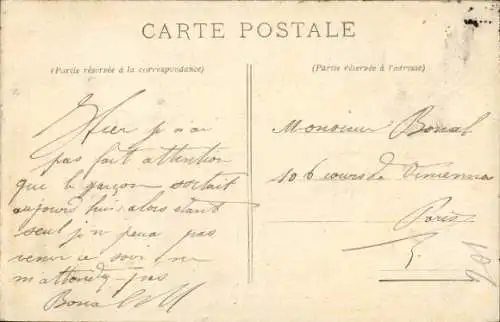 CARTE POSTALE
(Partie réservée à la correspondance)
(Partie réservée à l'adresse)
Hier j n ai
pas fait attention
que le garçon sortait
aujourd hui alors étant
seul j n peux pas
venir ce soir ne
m attendez pas
Bonal
Monsieur Bonal
106 cours de Vincennes
Paris